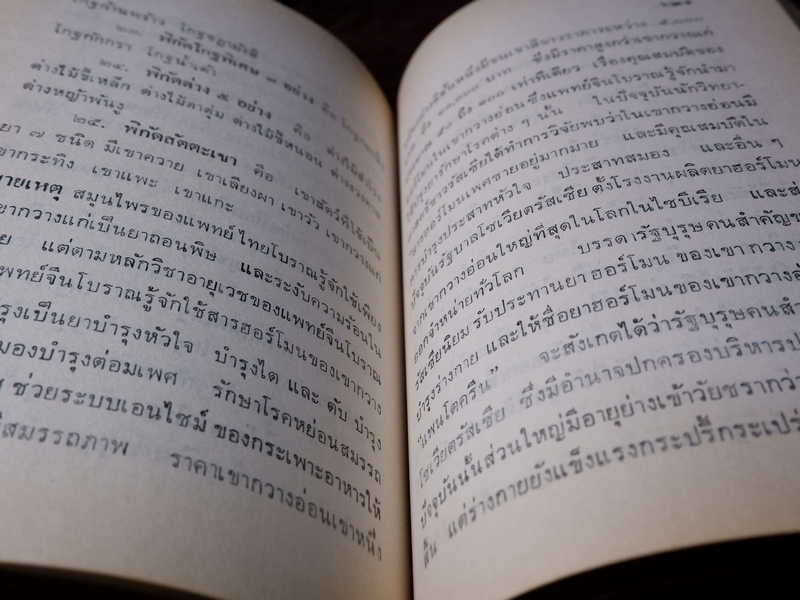 โกฐกักกรา โกฐน้ำเต้า
๒๓. พิกัดโกฐพิเศษ ๓ อย่าง คือ
๒๔. พิกัดต่าง ๕ อย่าง คือ
ต่างไม้ขี้เหล็ก ต่างไม้ตาตุ่ม ต่างไม้ขี้หนอน
ต่างหญ้าพันงู
๒๕. พิกัดสัตตะเขา คือ เขาสัตว์ที่ใช้เป็น
ยา ๗ ชนิด มีเขาควาย เขาเลียงผา เขาวัว เขากวางแก่
เขากระทิง เขาแพะ เขาแกะ
เหตุ สมุนไพรของแพทย์ไทยโบราณรู้จักใช้เพียง
เขากวางแก่เป็นยาถอนพิษ และระงับความร้อนใน
แต่ตามหลักวิชาอายุเวชของแพทย์จีนโบราณ
แพทย์จีนโบราณรู้จักใช้สารฮอร์โมนของเขากวาง
เป็นยาบำรุงหัวใจ บำรุงไต และ ตับ บำรุง
บำรุงต่อมเพศ รักษาโรคหย่อนสมรรถ
ช่วยระบบเอนไซม์ ของกระเพาะอาหารให้
สมรรถภาพ ราคาเขากวางอ่อนเขาหนึ่ง
บาท ซึ่งมีราคาสูงกว่าเขากวางแก่
ถึง ๑๐๐ เท่าทีเดียว เรื่องคุณสมบัติของ
ในเขากวางอ่อนซึ่งแพทย์จีนโบราณรู้จักนำมา
รักษาโรคต่าง ๆ นั้น ในปัจจุบันนักวิทยา-
รัสเซียได้ทำการวิจัยพบว่าในเขากวางอ่อนมี
ฮอร์โมนเพศชายอยู่มากมาย และมีคุณสมบัติใน
บำรุงประสาทหัวใจ ประสาทสมอง และอื่น ๆ
ปัจจุบันรัฐบาลโซเวียตรัสเซีย ตั้งโรงงานผลิตยาฮอร์โมน
จากเขากวางอ่อนใหญ่ที่สุดในโลกในไซบีเรีย และส่ง
ออกจำหน่ายทั่วโลก บรรดารัฐบุรุษคนสำคัญ
รัสเซียนิยม รับประทานยา ฮอร์โมน ของเขา กวาง
บำรุงร่างกาย และให้ชื่อยาฮอร์โมนของเขากวาง
"แพนโตครีน" จะสังเกตได้ว่ารัฐบุรุษคนสำ
โซเวียตรัสเซีย ซึ่งมีอำนาจปกครองบริหาร
ปัจจุบันนั้นส่วนใหญ่มีอายุย่างเข้าวัยชรากว่า
สิ้น แต่ร่างกายยังแข็งแรงกระปรี้กระเปร่